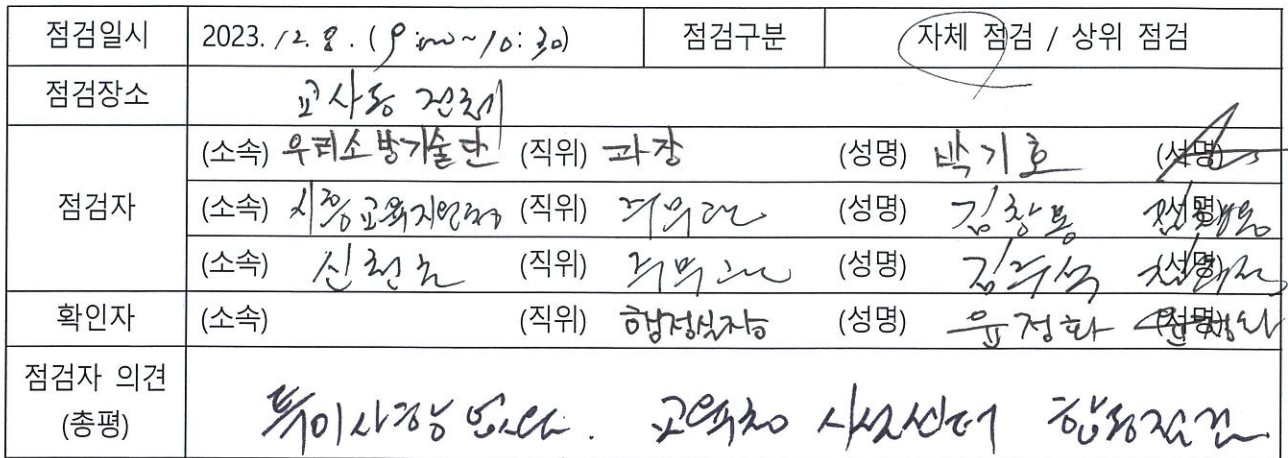 점검일시 2023. 12. 8. (9:00~10:30) 점검구분 자체 점검 / 상위 점검
점검장소 교사동 전체
(소속) 우리소방기술단 (직위) 과장 (성명) 박기호 (서명)
점검자 (소속) 시흥교육지원청 (직위) 주무관 (성명) 김창용 (서명)
(소속) 신천초 (직위) 주무관 (성명) 김주석 (서명)
확인자 (소속) (직위) 행정실장 (성명) 윤정화 (서명)
점검자 의견
(총평) 특이사항 없습니다. 교육청 시설센터 합동점검